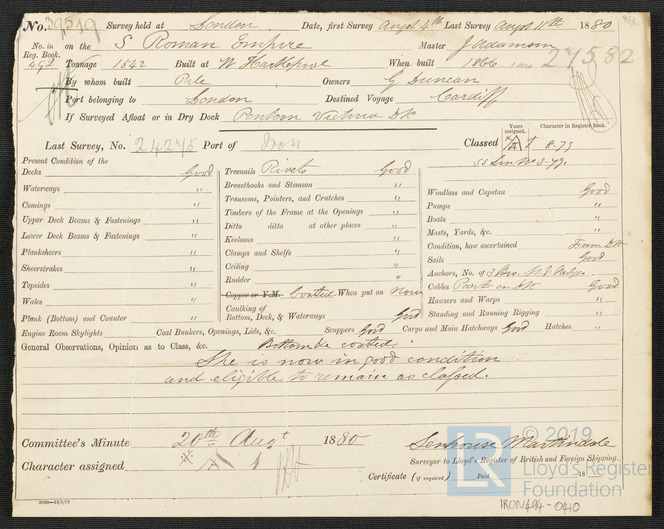 No. 39519 Survey held at London Date, first Survey Augst 4th Last Survey Augst 11th 1880
No. in Reg. Book. 492 on the S Roman Empire Master J Adamson
27582
Tonnage 1542 Built at W Hartlepool When built 1866
By whom built Pile Owners G Duncan
Port belonging to London Destined Voyage Cardiff
If Surveyed Afloat or in Dry Dock Pontoon Victoria Dk
Last Survey, No. 24275 Port of Iron Classed
Years assigned. Character in Register Book.
A 1 8-79
SS Lon No 3-79.
Present Condition of the
Decks Good
Waterways "
Comings "
Upper Deck Beams & Fastenings "
Lower Deck Beams & Fastenings "
Planksheers "
Sheerstrakes "
Topsides "
Wales "
Plank (Bottom) and Counter "
Engine Room Skylights
Treenails Rivets Good
Breasthooks and Stemson "
Transoms, Pointers, and Crutches "
Timbers of the Frame at the Openings "
Ditto ditto at other places "
Keelsons "
Clamps and Shelfs "
Ceiling "
Rudder "
Copper or Y.M. Coated When put on Now
Caulking of Bottom, Deck, & Waterways Good
Windlass and Capstan Good
Pumps "
Boats "
Masts, Yards, &c. "
Condition, how ascertained From Dk
Sails Good
Anchors, No. of 3 Bos.
Cables Part on Dk Good
Hawsers and Warps "
Standing and Running Rigging "
Coal Bunkers, Openings, Lids, &c. Scuppers Good Cargo and Main Hatchways Good Hatches "
General Observations, Opinion as to Class, &c. Bottom be coated.
She is now in good condition
and eligible to remain as classed.
Committee's Minute 20th Augt 1880
Character assigned A 1
Senhouse Martindale
Surveyor to Lloyd's Register of British and Foreign Shipping.
Certificate (if required) Paid
© 2019
LR Lloyd's Register Foundation
IRON494-0410